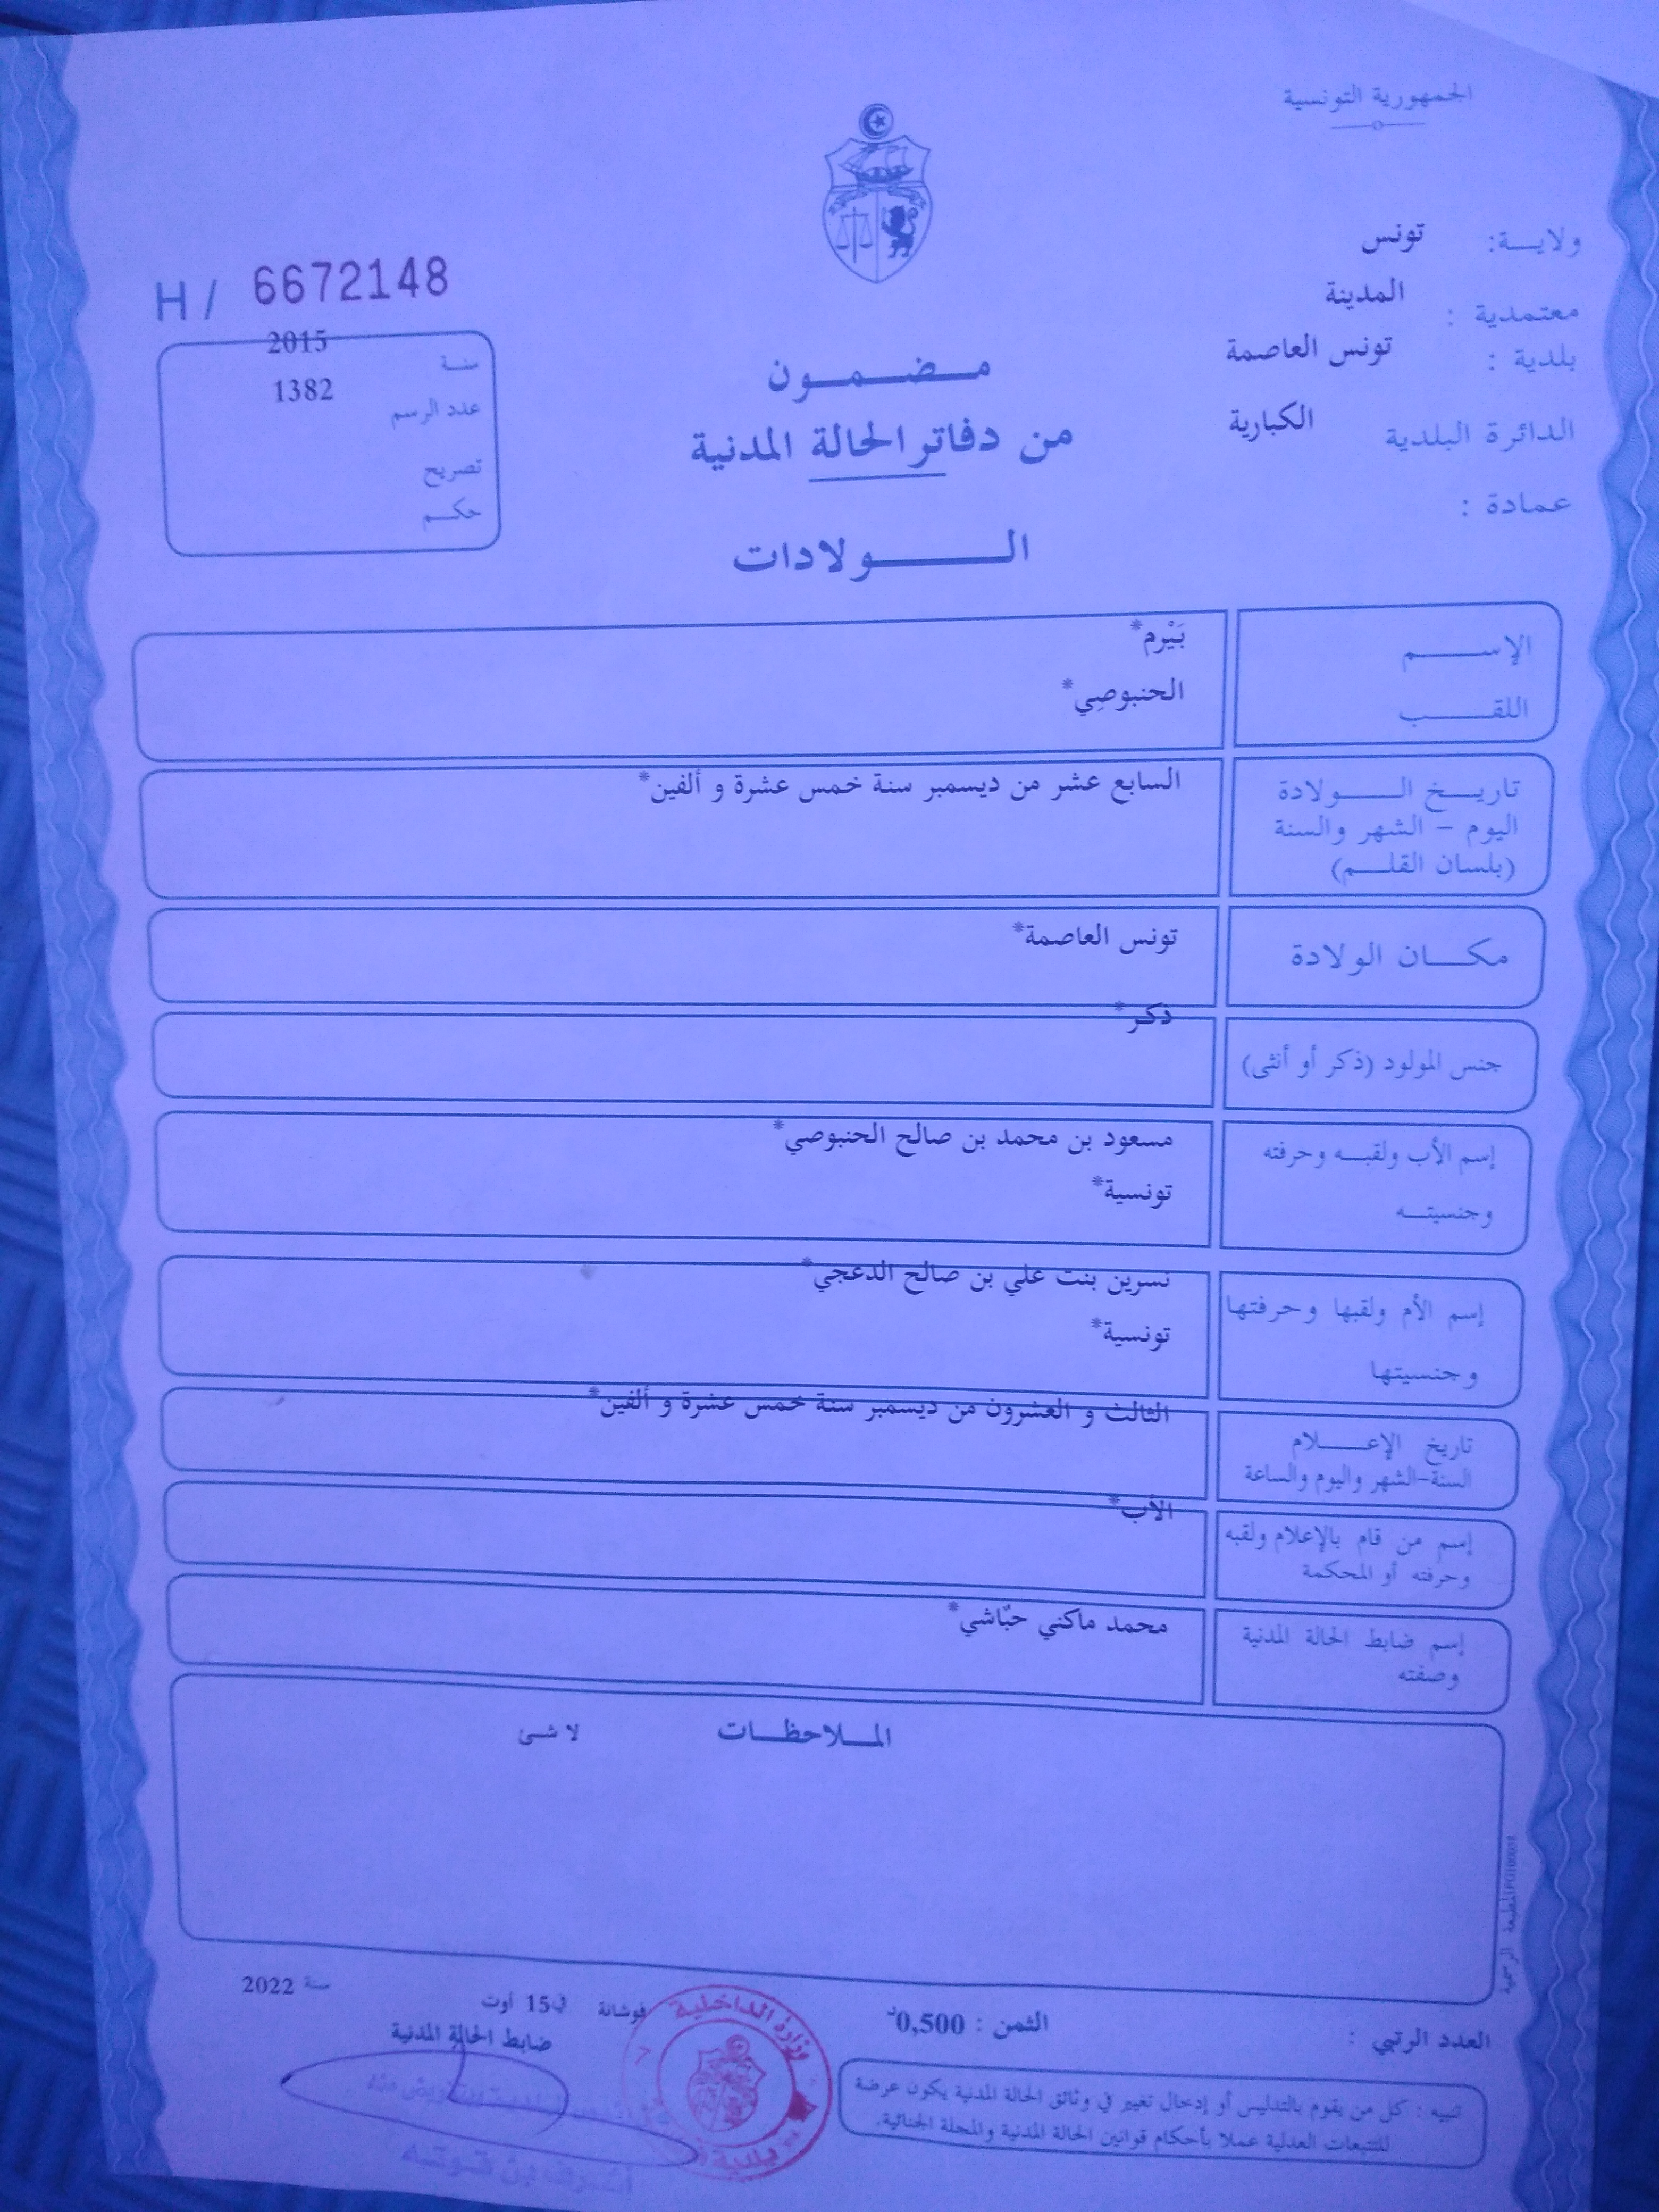 الجمهورية التونسية
ولايـــة: تونس
معتمدية : المدينة
بلدية : تونس العاصمة
الدائرة البلدية الكبارية
عمادة :
H / 6672148
سنـة 2015
عدد الرسم 1382
تصريح
حكـم
مـضـمـون
من دفاتر الحالة المدنية
الـــولادات
الإســـم بَيْرم*
اللقـــب الحنبوصِي*
تاريـخ الـــولادة السابع عشر من ديسمبر سنة خمس عشرة و ألفين*
اليوم – الشهر والسنة
(بلسان القلـم)
مكـــان الولادة تونس العاصمة*
جنس المولود (ذكر أو أنثى) ذكر*
إسم الأب ولقبـه وحرفته مسعود بن محمد بن صالح الحنبوصي*
وجنسيتـه تونسية*
إسم الأم ولقبها وحرفتها نسرين بنت علي بن صالح الدعجي*
وجنسيتها تونسية*
تاريخ الإعــلام الثالث و العشرون من ديسمبر سنة خمس عشرة و ألفين*
السنة-الشهر واليوم والساعة
إسم من قام بالإعلام ولقبه الأب*
وحرفته أو المحكمة
إسم ضابط الحالة المدنية محمد ماكني حبّاشي*
وصفته
المـلاحظـات لا شئ
المطبعة الرسمية
العدد الرتبي :
الثمن : 0,500د
فوشانة في 15 أوت سنة 2022
ضابط الحالة المدنية
تنبيه : كل من يقوم بالتدليس أو إدخال تغيير في وثائق الحالة المدنية يكون عرضة
للتتبعات العدلية عملا بأحكام قوانين الحالة المدنية والمجلة الجنائية.
وزارة الداخلية
بلدية